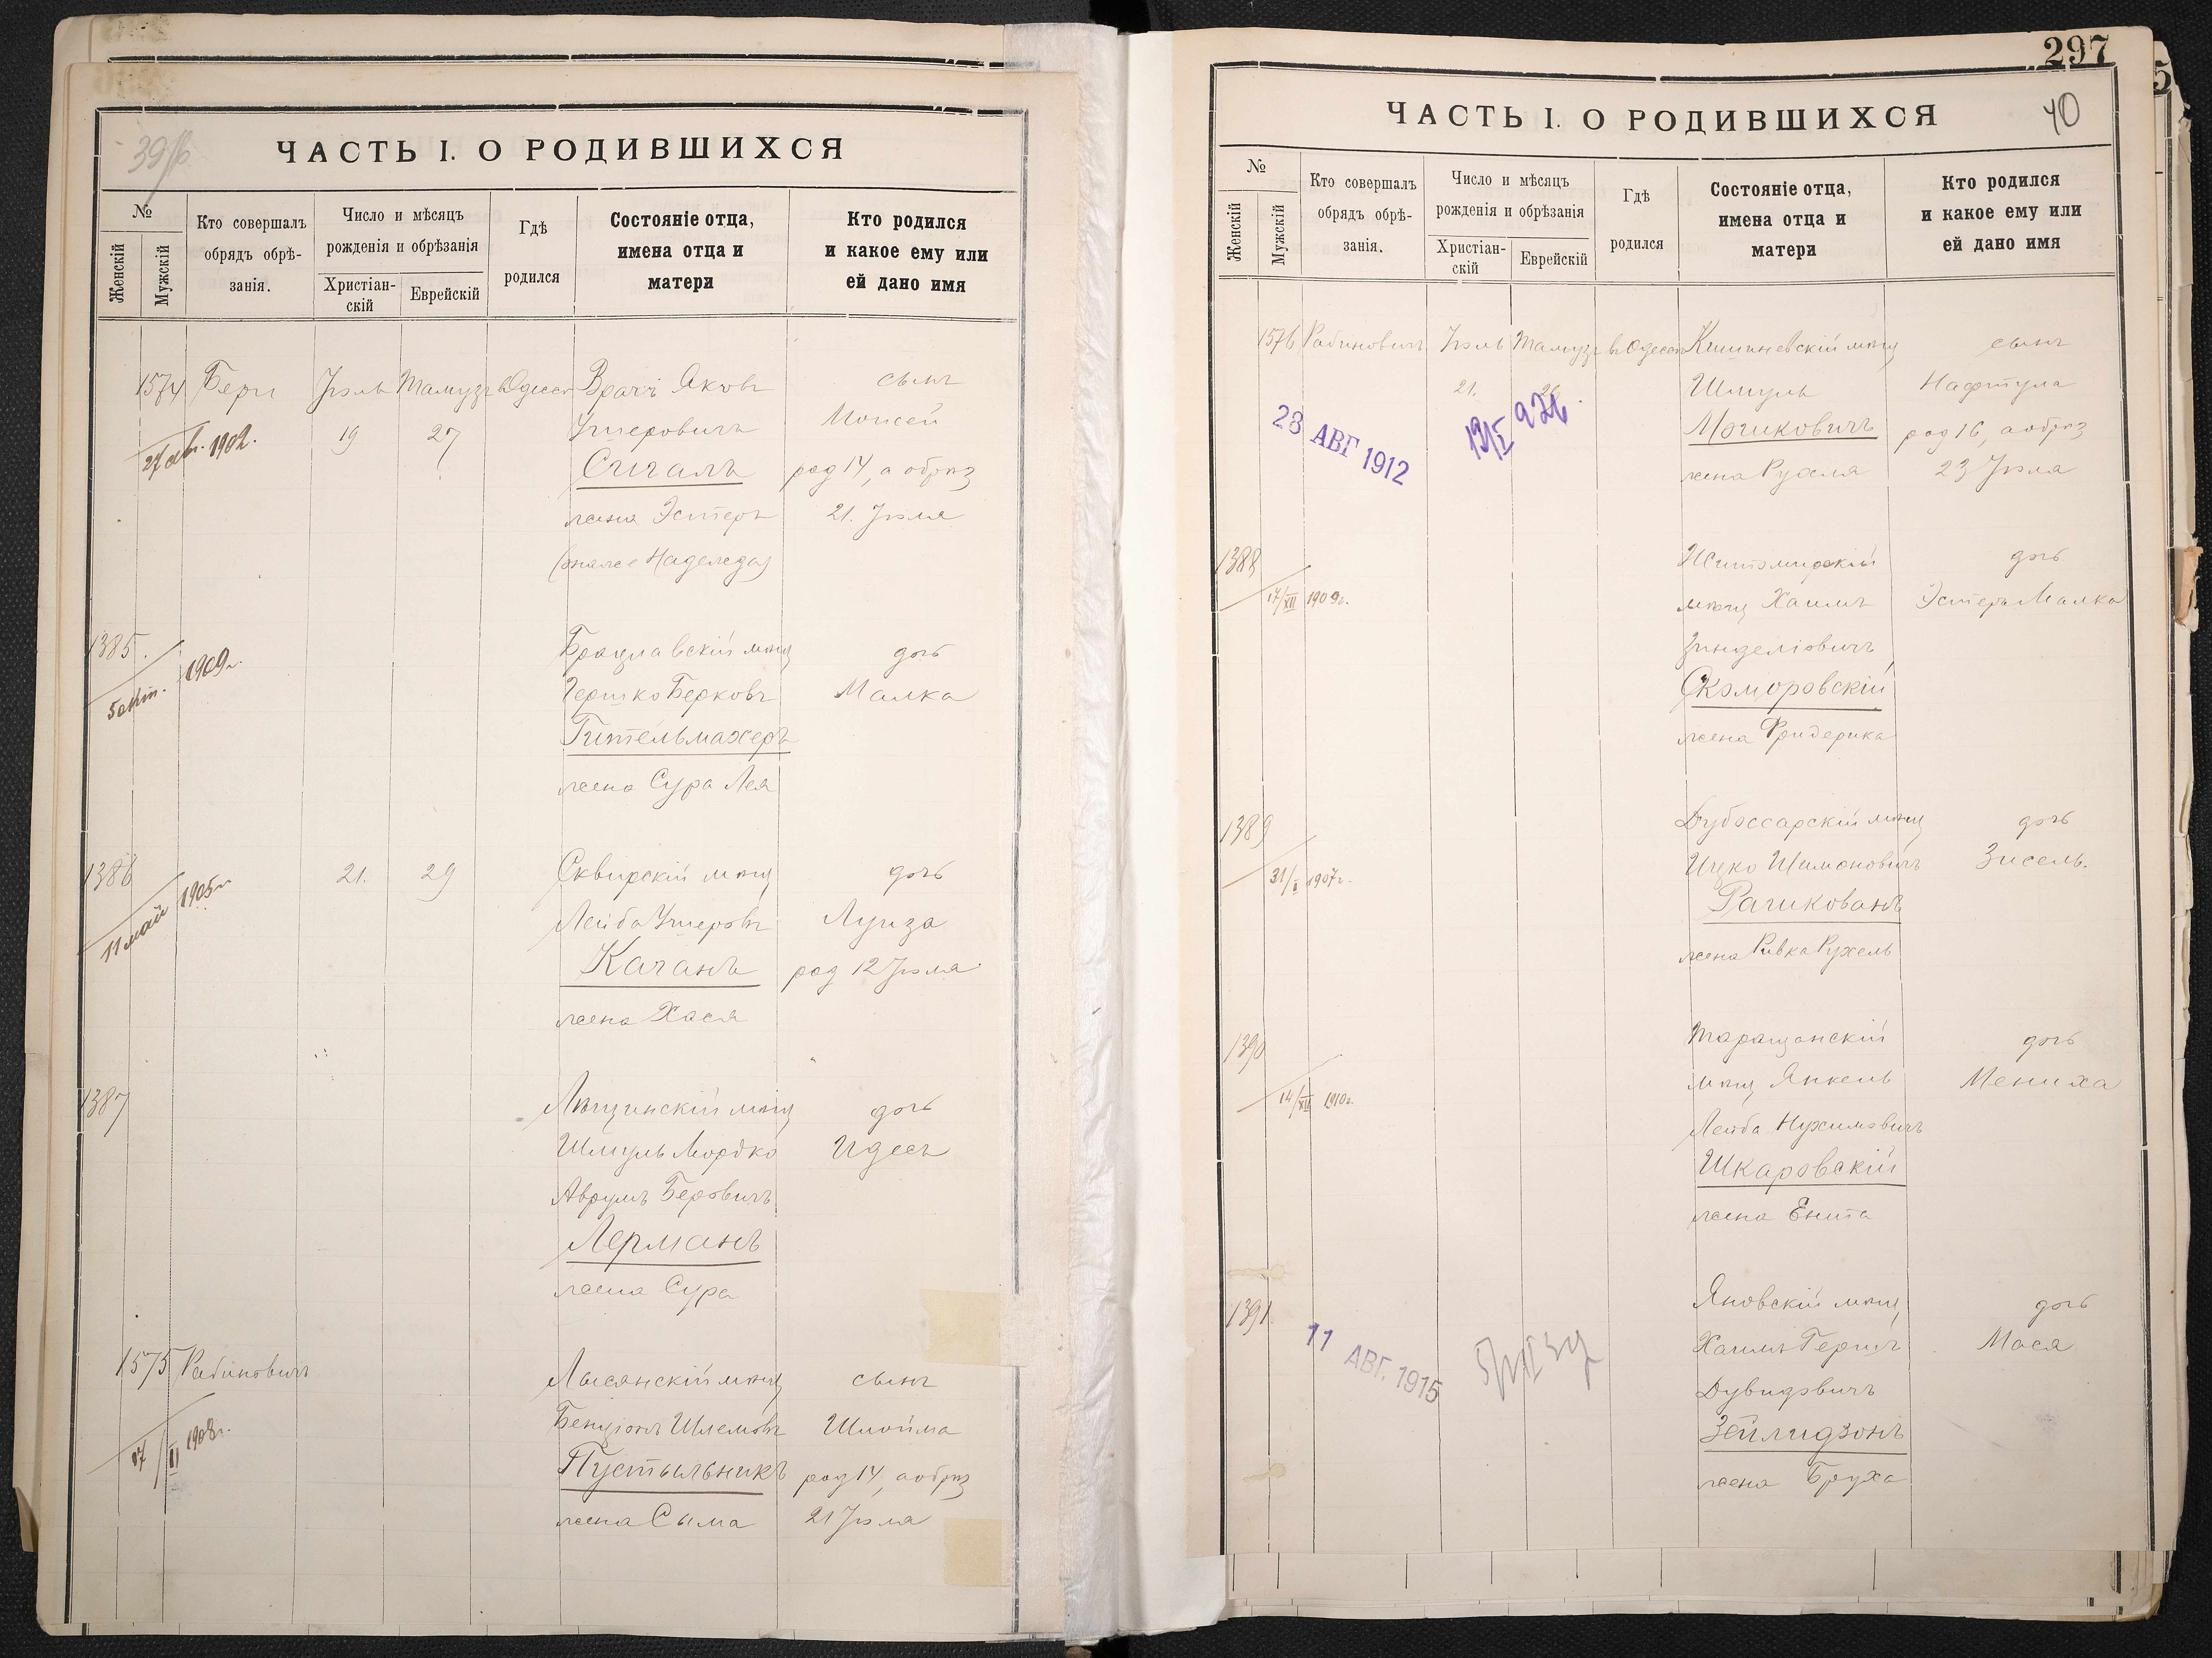 39об
ЧАСТЬ I. О РОДИВШИХСЯ
№
Женскій
Мужскій
Кто совершалъ
обрядъ обрѣ-
занія.
Число и мѣсяцъ
рожденія и обрѣзанія
Христіан-
скій
Еврейскій
Гдѣ
родился
Состояніе отца,
имена отца и
матери
Кто родился
и какое ему или
ей дано имя
1574 Берг Іюль Тамузъ въ Одессѣ Врачъ Яковъ сынъ
27 авг. 1902. 19 27 Ушеровичъ Моисей
Сигалъ род 14, а обрѣз
жена Эстеръ 21. Іюля
(она же Надежда)
1385. Брацлавскій мѣщ дочь
1909г. Гершко Берковъ Малка
Гительмахеръ
жена Сура Лея
1386 21. 29 Сквирскій мѣщ дочь
11 май 1905г Лейба Ушеровъ Луиза
Каганъ род 12 Іюля
жена Хася
1387 мѣщ дочь
Шмуль Мордко Идесъ
Аврумъ Беровичъ
Лерманъ
жена Сура
1575 Рабиновичъ Лысянскій мѣщ сынъ
1908г. Бенціонъ Шлемовъ Шлойма
Пустыльникъ род 14, а обрѣз
жена Сыма 21 Іюля
297
40
ЧАСТЬ I. О РОДИВШИХСЯ
№
Женскій
Мужскій
Кто совершалъ
обрядъ обрѣ-
занія.
Число и мѣсяцъ
рожденія и обрѣзанія
Христіан-
скій
Еврейскій
Гдѣ
родился
Состояніе отца,
имена отца и
матери
Кто родился
и какое ему или
ей дано имя
1576 Рабиновичъ Іюль Тамузъ въ Одессѣ Кишиневскій мѣщ сынъ
21. Шмуль Нафтула
23 АВГ 1912 род 16, а обрѣз
жена Рухля 23 Іюля
1388 Житомирскій дочь
17/XII 1909г. мѣщ Хаимъ Эстеръ Малка
Зинделіовичъ
Скоморовскій
жена Фридерика
1389 Дубоссарскій мѣщ дочь
31/I 1907г. Ицко Шимоновичъ Зисель.
Рашкованъ
жена Ривка Рухель
1390 Таращанскій дочь
14/XII 1910г. мѣщ Янкель Мениха
Лейба Нухимовичъ
Шкаровскій
жена Енита
1391 Яновскій мѣщ дочь
11 АВГ. 1915 Хаимъ Гершъ Мася
Дувидовичъ
Зейлидзонъ
жена Бруха